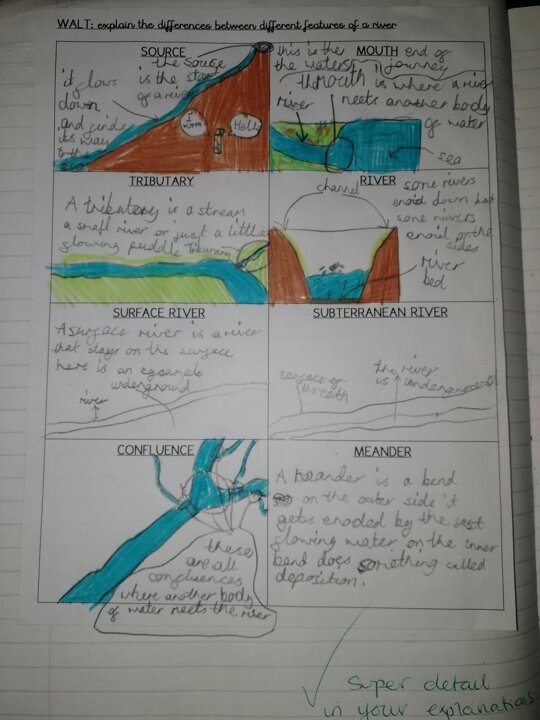 WALT: explain the differences between different features of a river
SOURCE
the source
is the star
of a river
it flows
down
and finds
its way
to the
sea
I
Hello
MOUTH
this is the end of
the waters journey
the Mouth is where a river
meets another body
of water
river
sea
TRIBUTARY
A tributary is a stream
a small river or just a little
flowing puddle
Tributary
RIVER
channel
some rivers
erroid down but
some rivers
erroid on the
sides
river
bed
SURFACE RIVER
A surface river is a river
that stays on the surface
here is an egsample
underground
river
SUBTERRANEAN RIVER
surface of
the earth
the river
is underground
CONFLUENCE
these
are all
confluences
where another body
of water meets the river
MEANDER
A meander is a bend
on the outer side it
gets eroded by the
flowing water on the inner
bend does something called
deposition.
Super detail
in your explanations